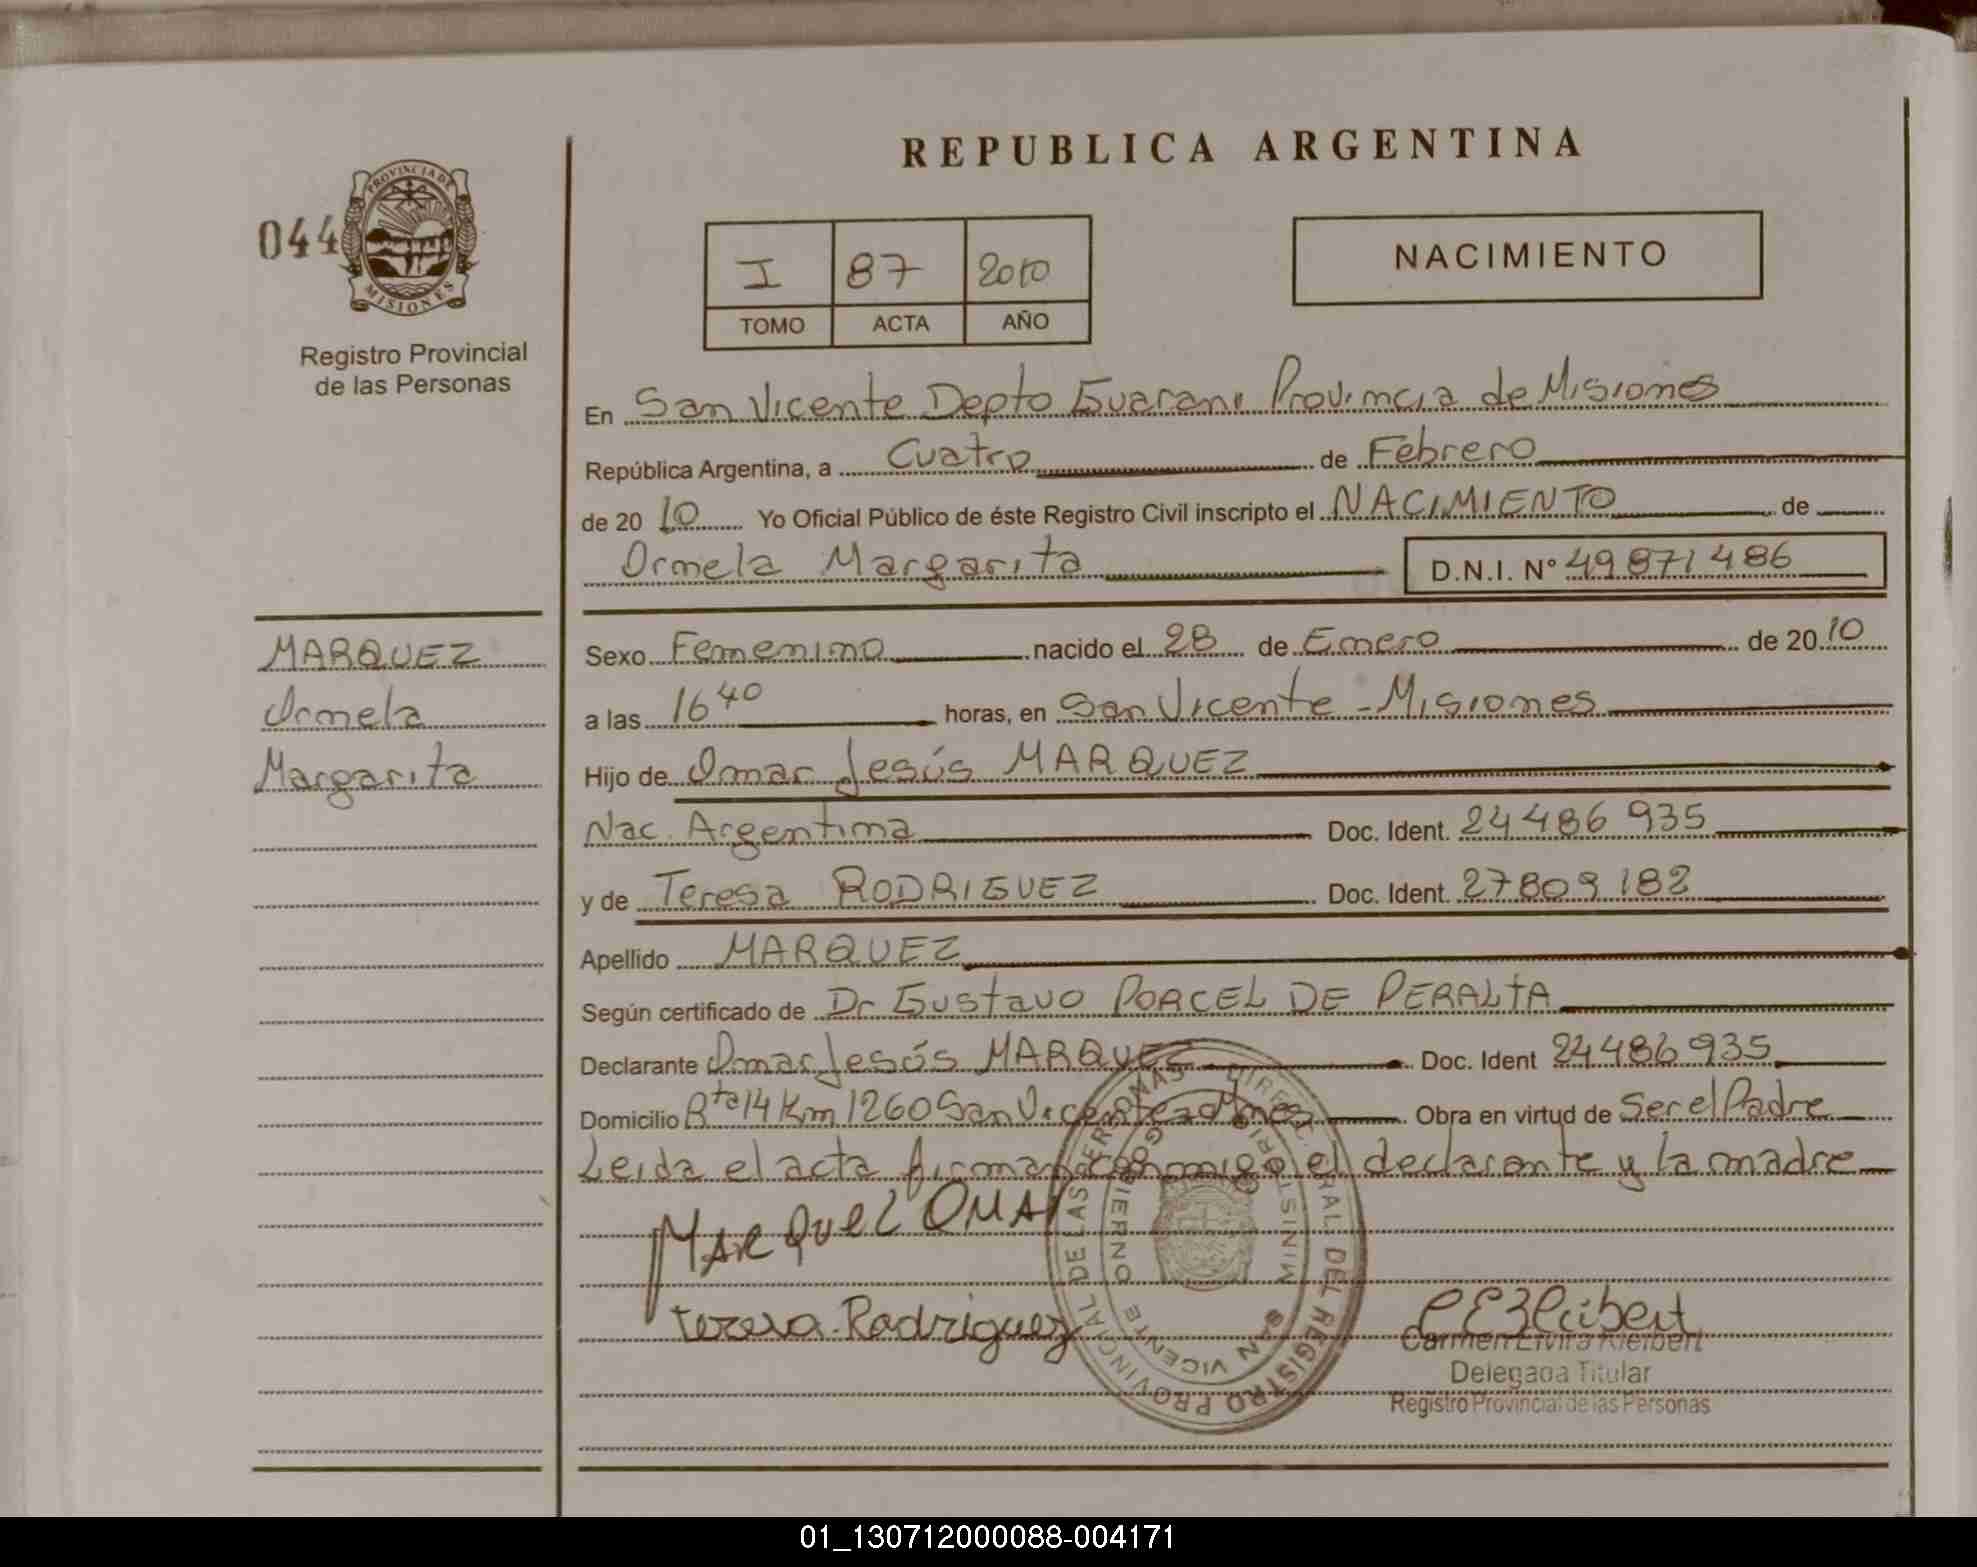 REPUBLICA ARGENTINA
044
PROVINCIA DE MISIONES
Registro Provincial
de las Personas
I 87 2010
TOMO ACTA AÑO
NACIMIENTO
En San Vicente Depto Guarani Provincia de Misiones
República Argentina, a Cuatro de Febrero
de 2010 Yo Oficial Público de éste Registro Civil inscripto el NACIMIENTO de
Ornela Margarita D.N.I. N° 49871486
MARQUEZ
Ornela
Margarita
Sexo Femenino nacido el 28 de Enero de 2010
a las 16 40 horas, en San Vicente - Misiones
Hijo de Omar Jesús MARQUEZ
Nac. Argentina Doc. Ident. 24486935
y de Teresa RODRIGUEZ Doc. Ident. 27809182
Apellido MARQUEZ
Según certificado de Dr Gustavo PORCEL DE PERALTA
Declarante Omar Jesús MARQUEZ Doc. Ident 24486935
Domicilio Rta 14 Km 1260 San Vicente - Mnes Obra en virtud de Ser el Padre
Leida el acta firman conmigo el declarante y la madre
MARQUEZ OMAR
Teresa Rodriguez
DIREC. GRAL DEL REGISTRO PROVINCIAL DE LAS PERSONAS
MINIST GOBIERNO
SAN VICENTE
Carmen Elvira Kleibert
Delegada Titular
Registro Provincial de las Personas
01_130712000088-004171